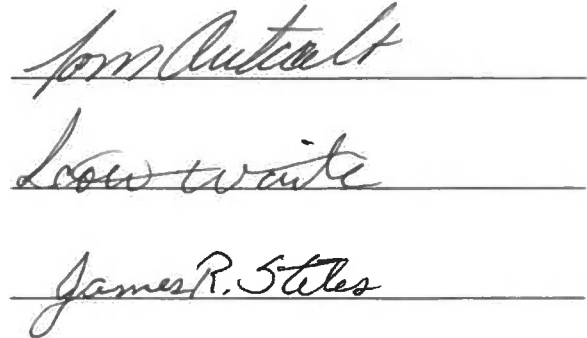 Tom Outcalt
Waite
James R. Stiles